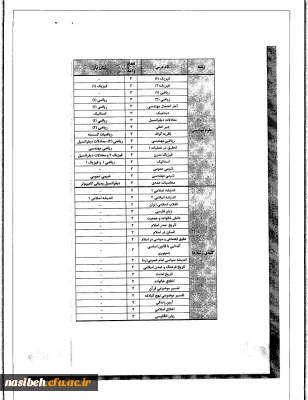 رشته نام درس تعداد واحد پیش نیاز
فیزیک (۱) ۳ -
فیزیک (۲) ۳ فیزیک (۱)
ریاضی (۱) ۳ -
ریاضی (۲) ۳ ریاضی (۱)
آمار احتمال مهندسی ۳ ریاضی (۱)
دینامیک ۳ استاتیک
معادلات دیفرانسیل ۳ ریاضی (۱)
جبر خطی ۳ ریاضی (۲)
نظریه گراف ۳ ریاضیات گسسته
ریاضی مهندسی ۳ ریاضی (۲)- معادلات دیفرانسیل
تحقیق در عملیات ۱ ۳ ریاضی مهندسی
فیزیک مدرن ۳ فیزیک ۲ و معادلات دیفرانسیل
استاتیک ۳ ریاضی ۱ و فیزیک ۱
شیمی عمومی ۳ -
شیمی مهندسی ۳ شیمی عمومی
محاسبات عددی ۲
اندیشه اسلامی ۱ ۲ -
اندیشه اسلامی ۲ ۲ اندیشه اسلامی ۱
انقلاب اسلامی ایران ۲ -
دانش خانواده و جمعیت ۲ -
زبان فارسی ۳ -
تاریخ صدر اسلام ۲ -
انسان در اسلام ۲ -
حقوق اجتماعی و سیاسی در اسلام ۲ -
آشنایی با قانون اساسی جمهوری ۲ -
اندیشه سیاسی امام خمینی(ره) ۲ -
تاریخ فرهنگ و تمدن اسلامی ۲ -
تاریخ امامت ۲ -
اخلاق خانواده ۲ -
تفسیر موضوعی قرآن ۲ -
تفسیر موضوعی نهج البلاغه ۲ -
آیین زندگی ۲ -
اخلاق اسلامی ۲ -
زبان انگلیسی ۳ -
nasibeh.cfu.ac.ir